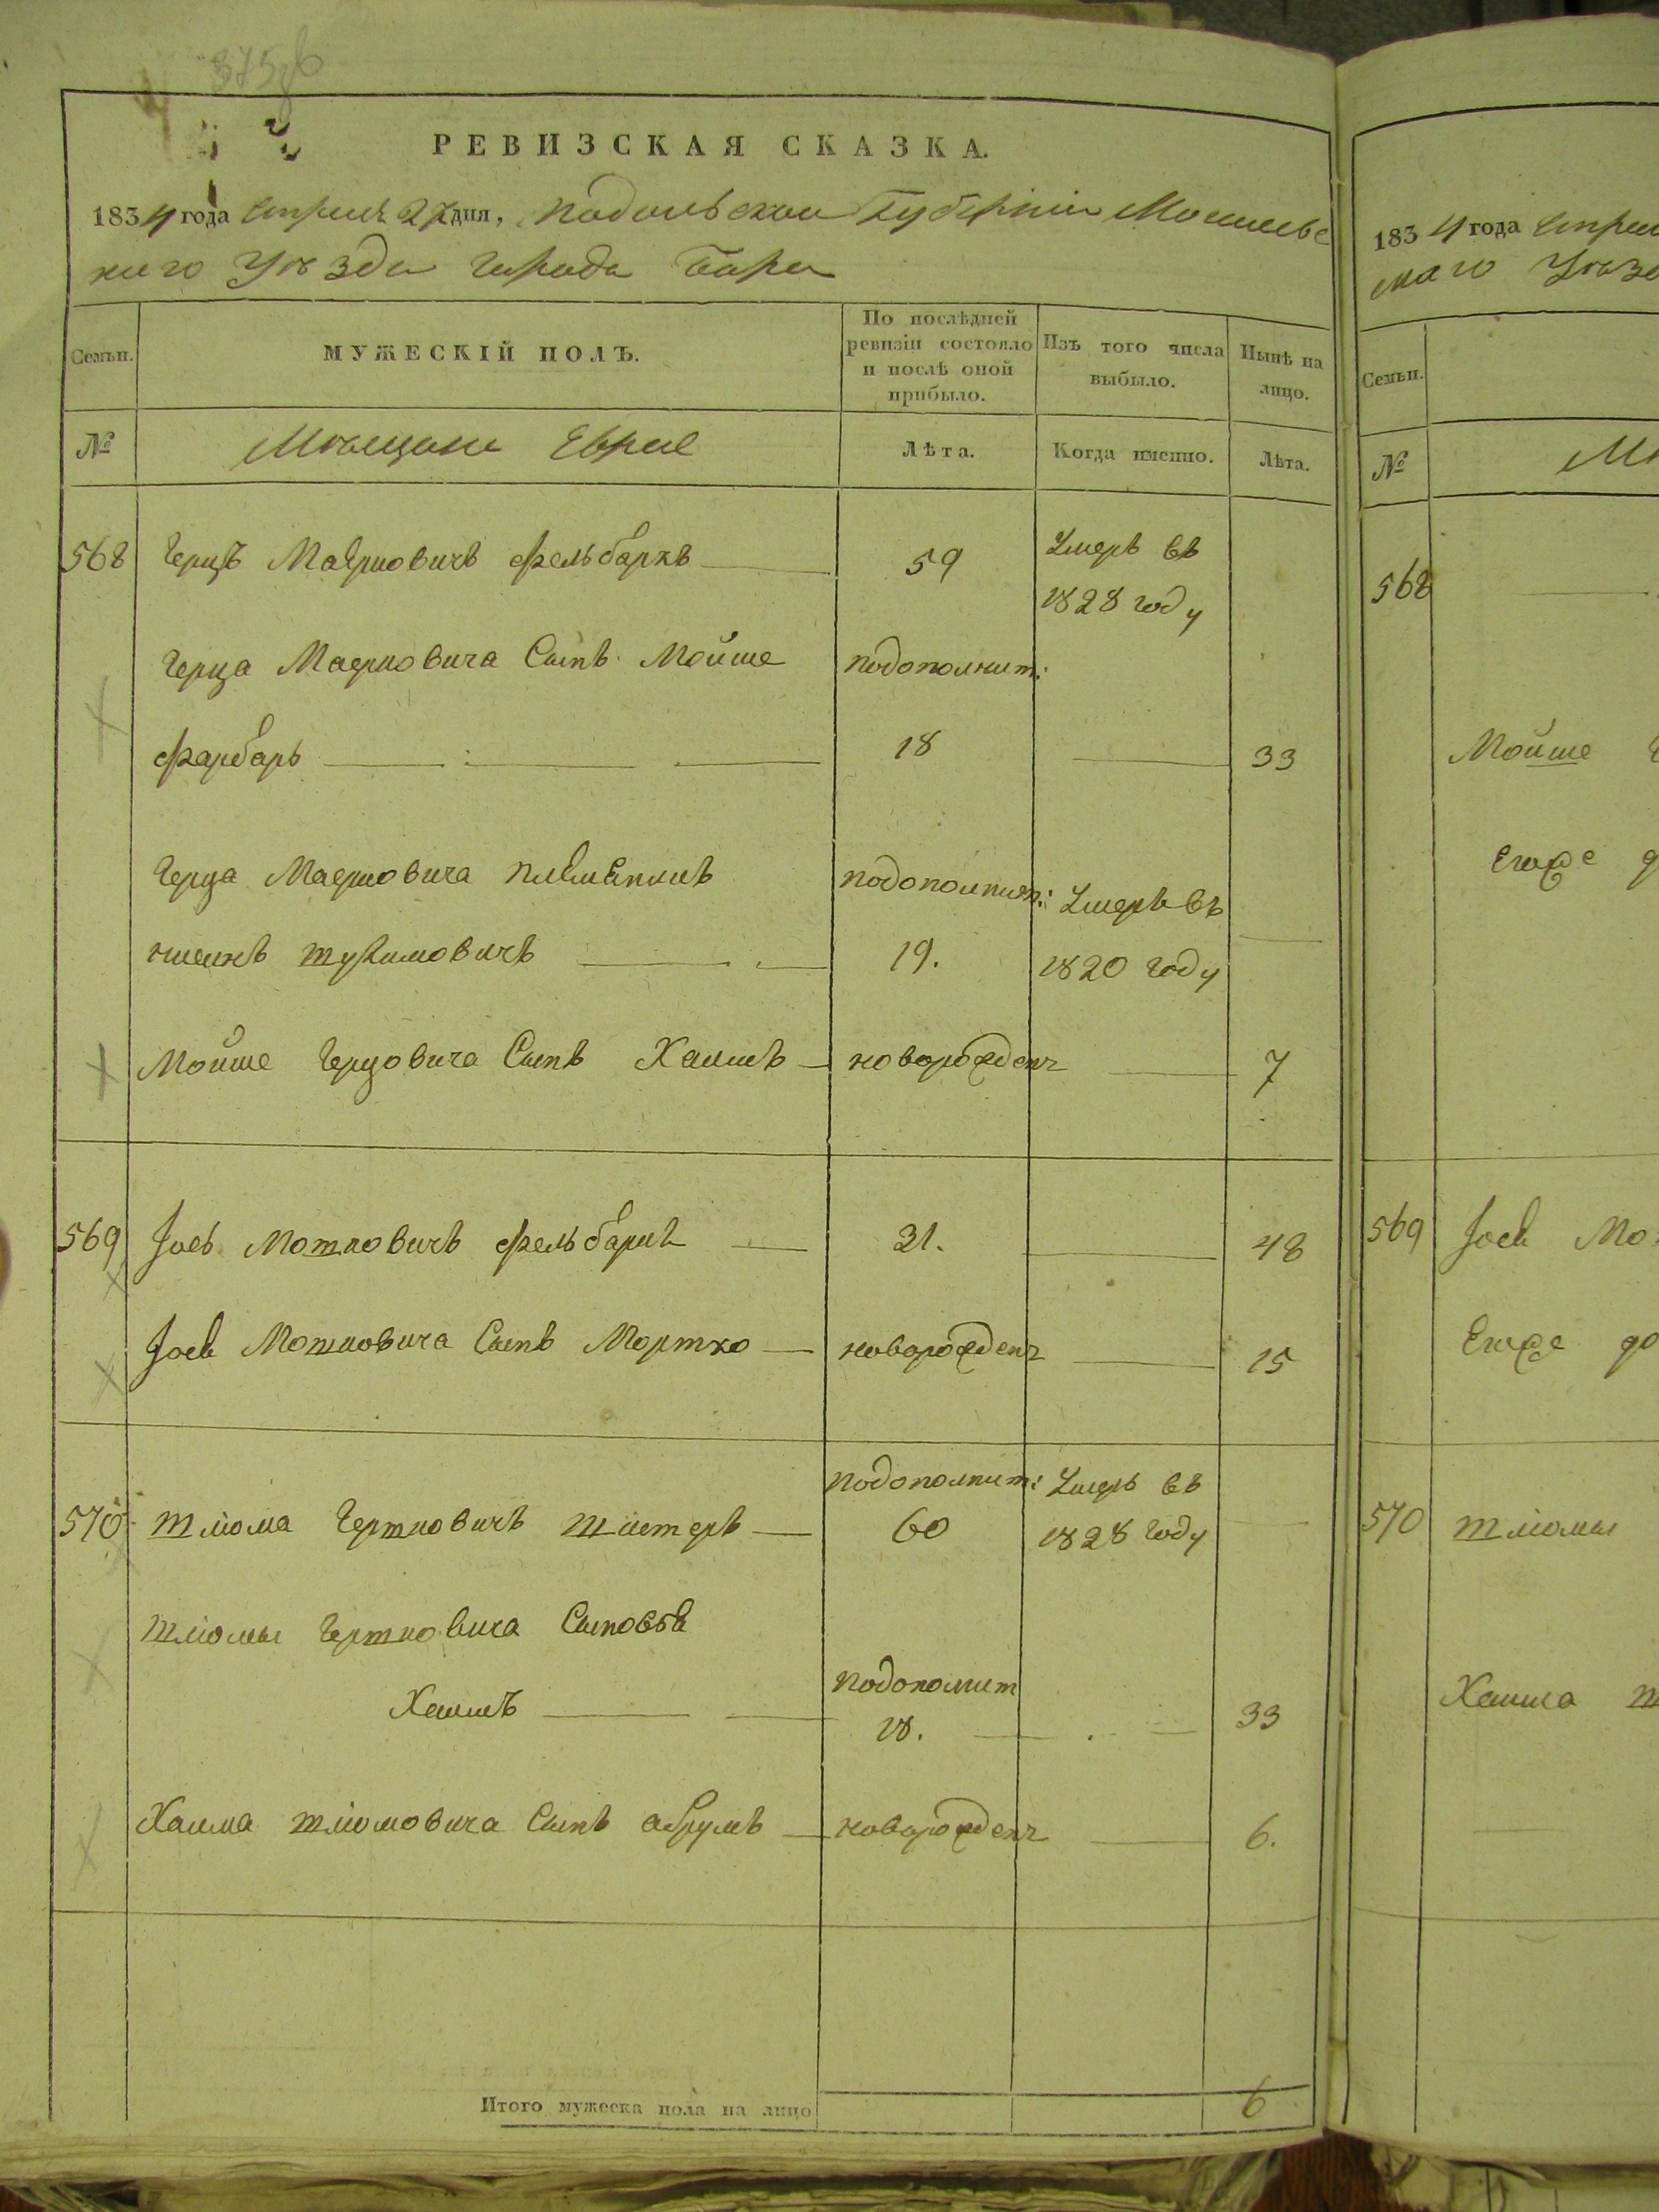 375
РЕВИЗСКАЯ СКАЗКА.
1834 года Апреля 27 дня, Подольской Губерніи Могилевс
каго Уѣзда Города Бара
Семьи.
МУЖЕСКІЙ ПОЛЪ.
По послѣдней ревизіи состояло и послѣ оной прибыло.
Изъ того числа выбыло.
Нынѣ на лицо.
№
Мѣщане Евреи
Лѣта.
Когда именно.
Лѣта.
568 Герцъ Маерковичъ Фельбаркъ 59 Умеръ въ
1828 году
Герца Маерковича Сынъ Мойше подополнит:
Фарбарь 18 33
Герца Маерковича племянникъ подополнит: Умеръ въ
19. 1820 году
Мойше Герцовича Сынъ Хаимъ новорожден 7
569 Іось Мотковичъ Фельбаркъ 31. 48
Іося Мотковича Сынъ Мортко новорожден 15
подополнит: Умеръ въ
570 Шліома Гершковичъ 60 1828 году
Шліомы Гершковича Сыновья
подополнит
Хаимъ 18. 33
Хаима Шліомовича Сынъ Абрумъ новорожден 6.
Итого мужеска пола на лицо 6
1834 года Апрел
каго Уѣзд
Семьи.
№
568
Мойше
Егоже
569 Іося Мо
Егоже до
570 Шліомы
Хаима Ш